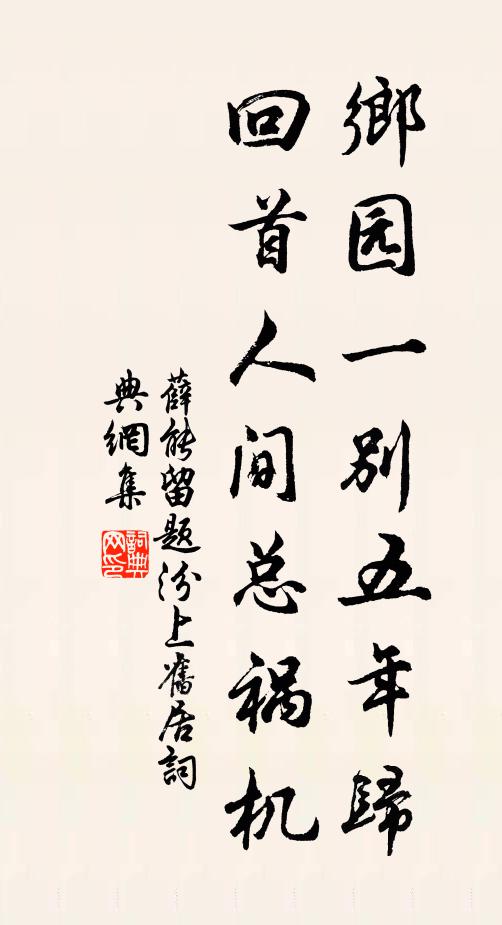 鄉园一别五年歸
回首人间总祸机
薛能留題汾上舊居詞
典網集
詞典网印